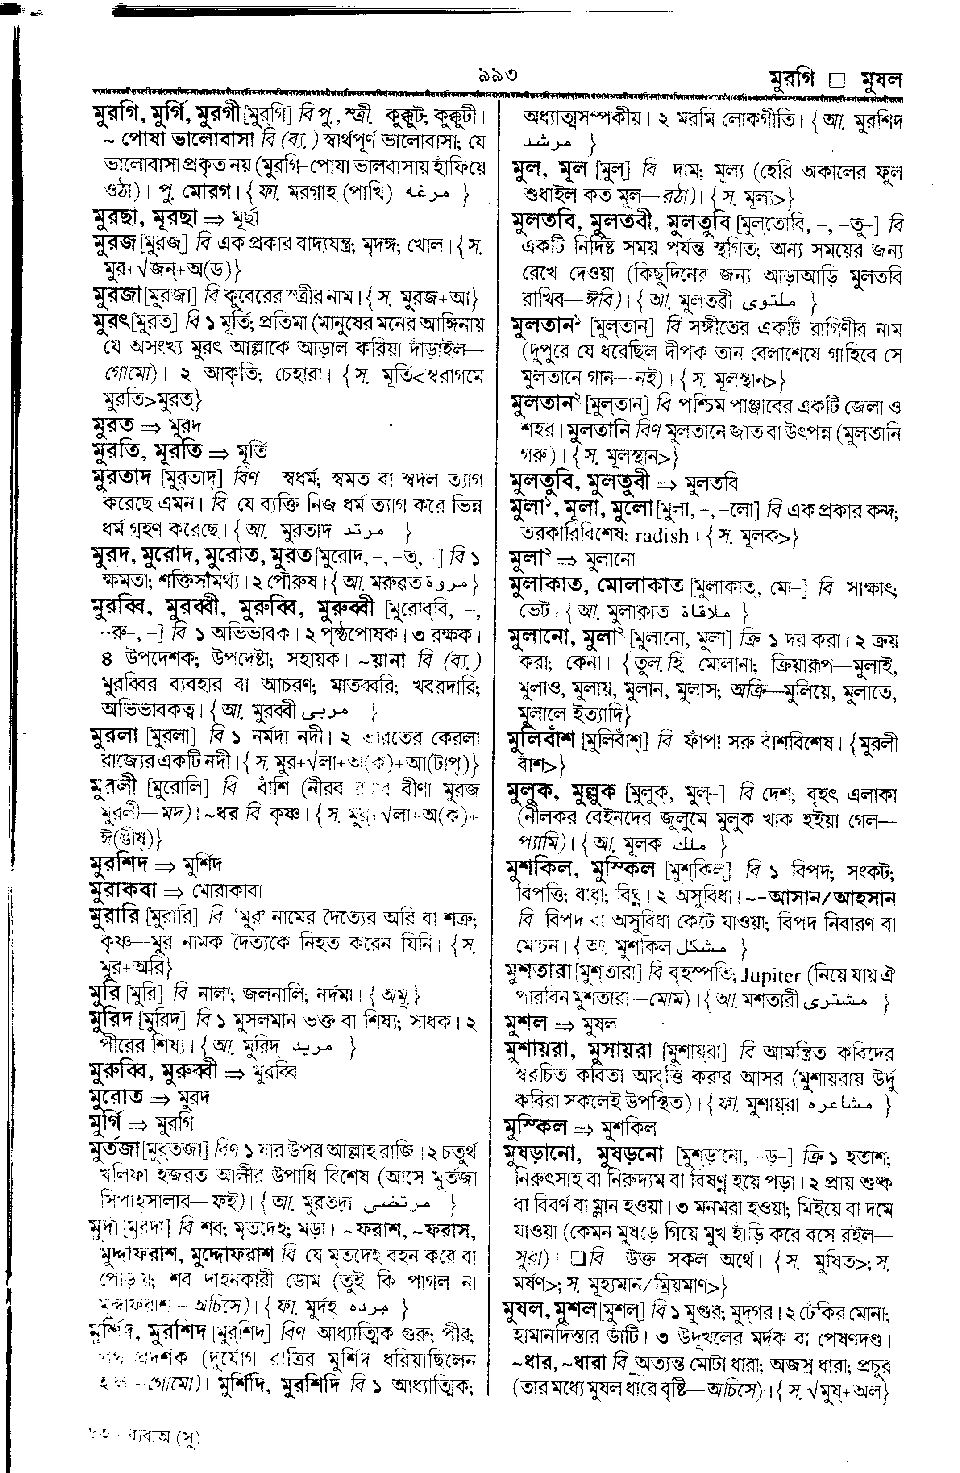 ৯৯৩
মুরগি □ মুষল
মুরগি, মুর্গি, মুরগী [মুর্‌গি] বি পু, স্ত্রী. কুক্কুট; কুক্কুটী।
~ পোষা ভালোবাসা বি (ব্য.) স্বার্থপূর্ণ ভালোবাসা; যে
ভালোবাসা প্রকৃত নয় (মুরগি-পোষা ভালবাসায় হাঁফিয়ে
ওঠা)। পু. মোরগ। {ফা. মরগাহ (পাখি) مرغه }
মুরছা, মূরছা ⇒ মূর্ছা
মুরজ [মুরজ্] বি এক প্রকার বাদ্যযন্ত্র; মৃদঙ্গ; খোল। {স.
মুর+√জন্+অ(ড)}
মুরজা [মুরজা] বি কুবেরের স্ত্রীর নাম। {স. মুরজ+আ}
মুরৎ [মুরত্] বি ১ মূর্তি; প্রতিমা (মানুষের মনের আঙ্গিনায়
যে অসংখ্য মুরৎ আল্লাকে আড়াল করিয়া দাঁড়াইল—
গোমো)। ২ আকৃতি; চেহারা। {স. মূর্তি<স্বরাগমে
মুরতি>মুরত্}
মুরত ⇒ মুরদ
মুরতি, মূরতি ⇒ মূর্তি
মুরতাদ [মুরতাদ্] বিণ স্বধর্ম; স্বমত বা স্বদল ত্যাগ
করেছে এমন। বি যে ব্যক্তি নিজ ধর্ম ত্যাগ করে ভিন্ন
ধর্ম গ্রহণ করেছে। {আ. মুরতাদ مرتد }
মুরদ, মুরোদ, মুরোত, মুরত [মুরোদ্, -, -ত্, -] বি ১
ক্ষমতা; শক্তিসামর্থ্য। ২ পৌরুষ। {আ. মরুরত مروة }
মুরব্বি, মুরব্বী, মুরুব্বি, মুরুব্বী [মুরোব্‌বি, -,
-রু-, -] বি ১ অভিভাবক। ২ পৃষ্ঠপোষক। ৩ রক্ষক।
৪ উপদেশক; উপদেষ্টা; সহায়ক। ~য়ানা বি (ব্য.)
মুরব্বির ব্যবহার বা আচরণ; মাতব্বরি; খবরদারি;
অভিভাবকত্ব। {আ. মুরব্বী مربى }
মুরলা [মুরলা] বি ১ নর্মদা নদী। ২ ভারতের কেরলা
রাজ্যের একটি নদী। {স. মুর+√লা+অ(ক)+আ(টাপ্)}
মুরলী [মুরোলি] বি বাঁশি (নীরব বীণা মুরজ
মুরলী—মদ)। ~ধর বি কৃষ্ণ। {স. মুর+√লা+অ(ক)+
ঈ(ঙীষ্)}
মুরশিদ ⇒ মুর্শিদ
মুরাকবা ⇒ মোরাকাবা
মুরারি [মুরারি] বি 'মুর' নামের দৈত্যের অরি বা শত্রু;
কৃষ্ণ—মুর নামক দৈত্যকে নিহত করেন যিনি। {স.
মুর+অরি}
মুরি [মুরি] বি নালা; জলনালি; নর্দমা। {অমূ.}
মুরিদ [মুরিদ্] বি ১ মুসলমান ভক্ত বা শিষ্য; সাধক। ২
পীরের শিষ্য। {আ. মুরিদ مريد }
মুরুব্বি, মুরুব্বী ⇒ মুরব্বি
মুরোত ⇒ মুরদ
মুর্গি ⇒ মুরগি
মুর্তজা [মুর্‌তজা] বিণ ১ যার উপর আল্লাহ রাজি। ২ চতুর্থ
খলিফা হজরত আলীর উপাধি বিশেষ (আসে মুর্তজা
সিপাহসালার—ফই)। {আ. মুরতদা مرتضى }
মুর্দা [মুরদা] বি শব; মৃতদেহ; মড়া। ~ফরাশ, ~ফরাস,
মুদ্দাফরাশ, মুদ্দোফরাশ বি যে মৃতদেহ বহন করে বা
পোড়ায়; শব দাহনকারী ডোম (তুই কি পাগল না
মুদ্দাফরাশ - অচিসে)। {ফা. মুর্দহ مرده }
মুর্শিদ, মুরশিদ [মুরশিদ্] বিণ আধ্যাত্মিক গুরু; পীর;
প্রদর্শক (দুর্যোগ রাত্রির মুর্শিদ ধরিয়াছিলেন
হাল—গোমো)। মুর্শিদি, মুরশিদি বি ১ আধ্যাত্মিক;
ব্যবাঅ (সু)
অধ্যাত্মসম্পর্কীয়। ২ মরমি লোকগীতি। {আ. মুরশিদ
مرشد }
মুল, মূল [মুল্] বি দাম; মূল্য (হেরি অকালের ফুল
শুধাইল কত মূল—রঠা)। {স. মূল্য>}
মুলতবি, মুলতবী, মুলতুবি [মুলতোবি, -, -তু-] বি
একটি নির্দিষ্ট সময় পর্যন্ত স্থগিত; অন্য সময়ের জন্য
রেখে দেওয়া (কিছুদিনের জন্য আড়াআড়ি মুলতবি
রাখিব—ঈবি)। {আ. মুলতবী ملتوى }
মুলতান১ [মুল্‌তান্] বি সঙ্গীতের একটি রাগিণীর নাম
(দুপুরে যে ধরেছিল দীপক তান বেলাশেষে গাহিবে সে
মুলতানে গান—নই)। {স. মূলস্থান>}
মুলতান২ [মুল্‌তান্] বি পশ্চিম পাঞ্জাবের একটি জেলা ও
শহর। মুলতানি বিণ মুলতানে জাত বা উৎপন্ন (মুলতানি
গরু)। {স. মূলস্থান>}
মুলতুবি, মুলতুবী ⇒ মুলতবি
মুলা১, মূলা, মুলো [মুলা, -, -লো] বি এক প্রকার কন্দ;
তরকারিবিশেষ; radish। {স. মূলক>}
মুলা২ ⇒ মুলানো
মুলাকাত, মোলাকাত [মুলাকাত্, মো-] বি সাক্ষাৎ;
ভেট। {আ. মুলাকাত ملاقاة }
মুলানো, মুলা২ [মুলানো, মুলা] ক্রি ১ দর করা। ২ ক্রয়
করা; কেনা। {তুল. হি. মোলানা; ক্রিয়ারূপ—মুলাই,
মুলাও, মুলায়, মুলান, মুলাস; অক্রি—মুলিয়ে, মুলাতে,
মুলালে ইত্যাদি}
মুলিবাঁশ [মুলিবাঁশ্] বি ফাঁপা সরু বাঁশবিশেষ। {মুরলী
বাঁশ>}
মুলুক, মুল্লুক [মুলুক্, মুল্-] বি দেশ; বৃহৎ এলাকা
(নীলকর বেইনদের জুলুমে মুলুক খাক হইয়া গেল—
প্যামি)। {আ. মূলক ملك }
মুশকিল, মুস্কিল [মুশ্‌কিল্] বি ১ বিপদ; সংকট;
বিপত্তি; বাধা; বিঘ্ন। ২ অসুবিধা। ~-আসান/আহসান
বি বিপদ বা অসুবিধা কেটে যাওয়া; বিপদ নিবারণ বা
মোচন। {আ. মুশকিল مشكل }
মুশতারা [মুশ্‌তারা] বি বৃহস্পতি; Jupiter (নিয়ে যায় ঐ
পারবিন মুশতারা—মোম)। {আ. মশতারী مشترى }
মুশল ⇒ মুষল
মুশায়রা, মুসায়রা [মুশায়রা] বি আমন্ত্রিত কবিদের
স্বরচিত কবিতা আবৃত্তি করার আসর (মুশায়রায় উর্দু
কবিরা সকলেই উপস্থিত)। {ফা. মুশায়রা مشاعره }
মুস্কিল ⇒ মুশকিল
মুষড়ানো, মুষড়নো [মুশ্‌ড়ানো, -ড়-] ক্রি ১ হতাশ;
নিরুৎসাহ বা নিরুদ্যম বা বিষণ্ণ হয়ে পড়া। ২ প্রায় শুষ্ক
বা বিবর্ণ বা ম্লান হওয়া। ৩ মনমরা হওয়া; মিইয়ে বা দমে
যাওয়া (কেমন মুষড়ে গিয়ে মুখ হাঁড়ি করে বসে রইল—
সুরা)। □ বি উক্ত সকল অর্থে। {স. মুষিত>; স.
মর্ষণ>; স. মূহ্যমান/ম্রিয়মাণ>}
মুষল, মুশল [মুশল্] বি ১ মুগুর; মুদ্‌গর। ২ ঢেঁকির মোনা;
হামানদিস্তার ডাঁটি। ৩ উদূখলের মর্দক বা পেষণদণ্ড।
~ধার, ~ধারা বি অত্যন্ত মোটা ধারা; অজস্র ধারা; প্রচুর
(তার মধ্যে মুষল ধারে বৃষ্টি—অচিসে)। {স. √মুষ্+অল}